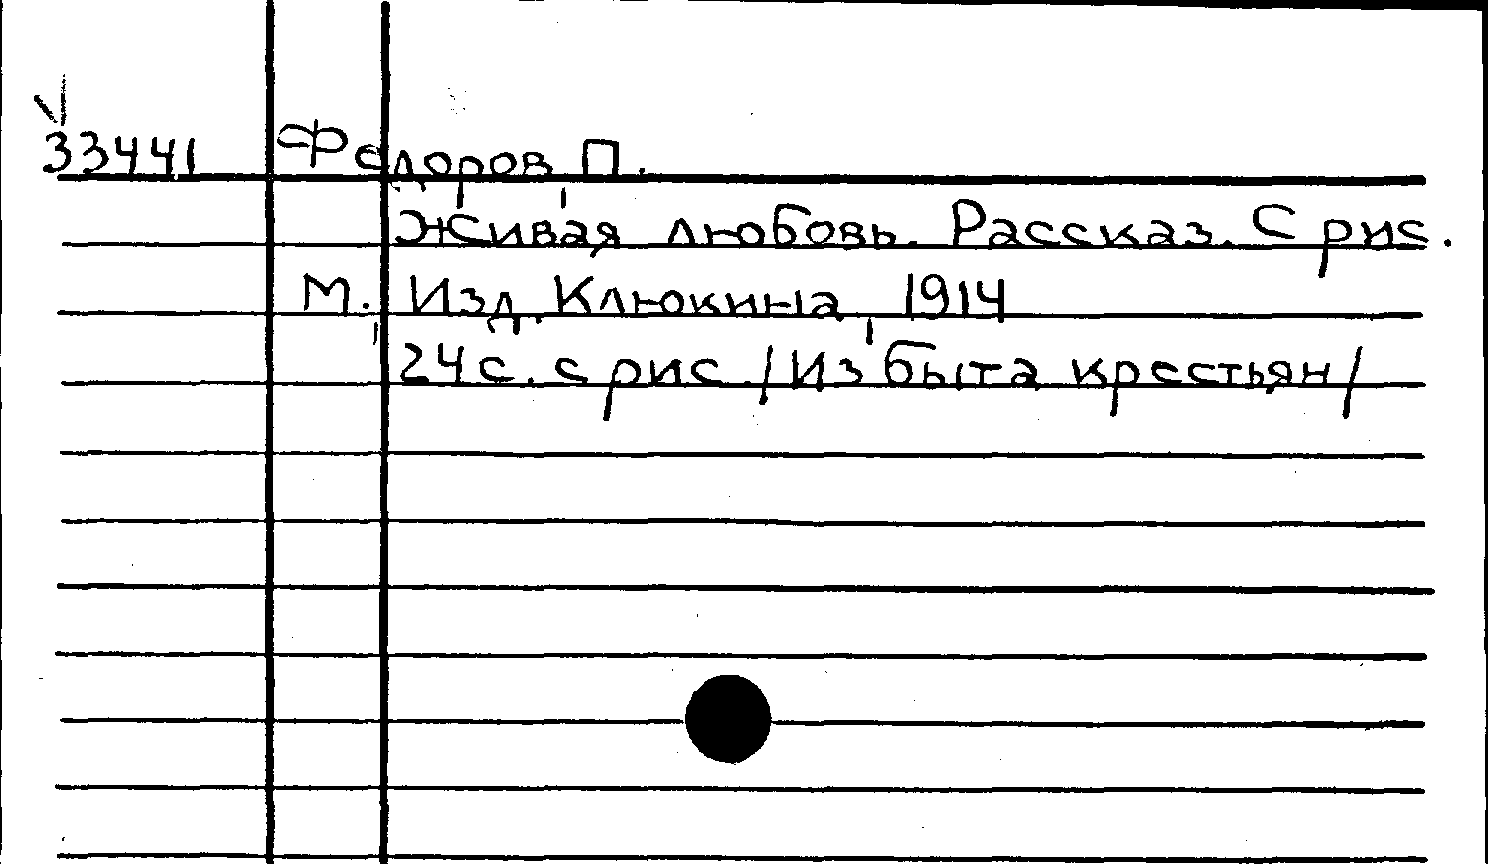 33441 Федоров, П.
Живая любовь. Рассказ. С рис.
М., Изд. Клюкина, 1914
24 с. с рис. /Из быта крестьян/